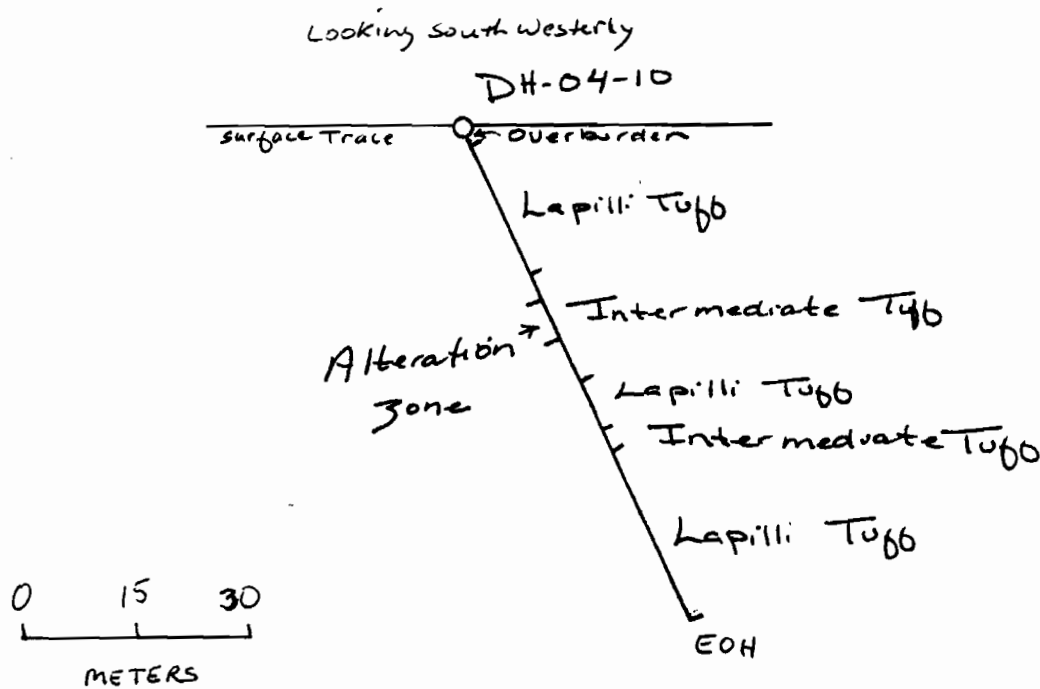 Looking South Westerly
DH-04-10
Surface Trace
Overburden
Lapilli Tuff
Intermediate Tuff
Alteration
Zone
Lapilli Tuff
Intermeduate Tuff
Lapilli Tuff
0 15 30
METERS
EOH